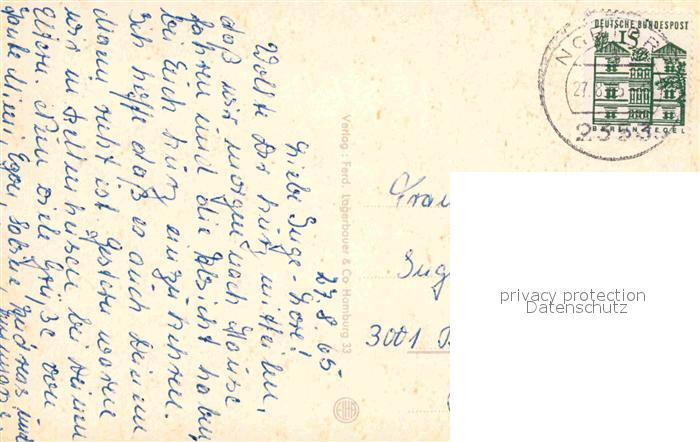 27.8.65
Liebe Inge-Lore!
Wollte Dir kurz mitteilen,
daß wir morgen nach Hause
fahren und die Absicht haben,
bei Euch kurz einzukehren.
Ich hoffe daß es auch Deinem
Mann recht ist. Gestern waren
wir in bei Deinen
Eltern. Nun viele Grüße von
Egon, Sabine, Andreas und
Verlag: Ferd. Lagerbauer & Co Hamburg 33
DEUTSCHE BUNDESPOST
15
BERLIN TEGEL
27.8.
Frau
3001
privacy protection
Datenschutz